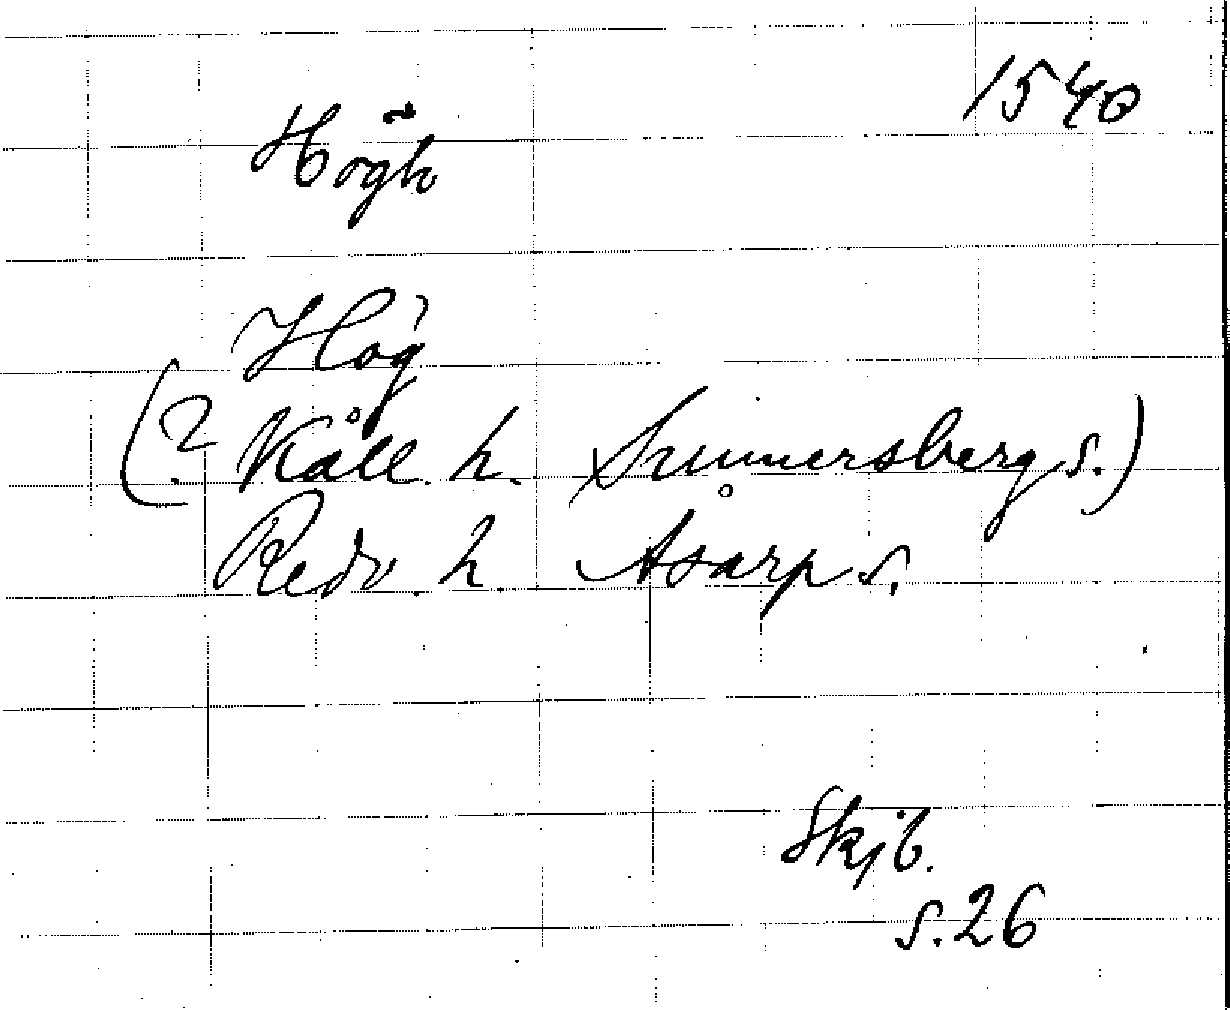 1540
Högh
Hög
(? Kåll. h. Sunnersberg s.)
Redv. h. Åsarp s.
Skjb.
s. 26